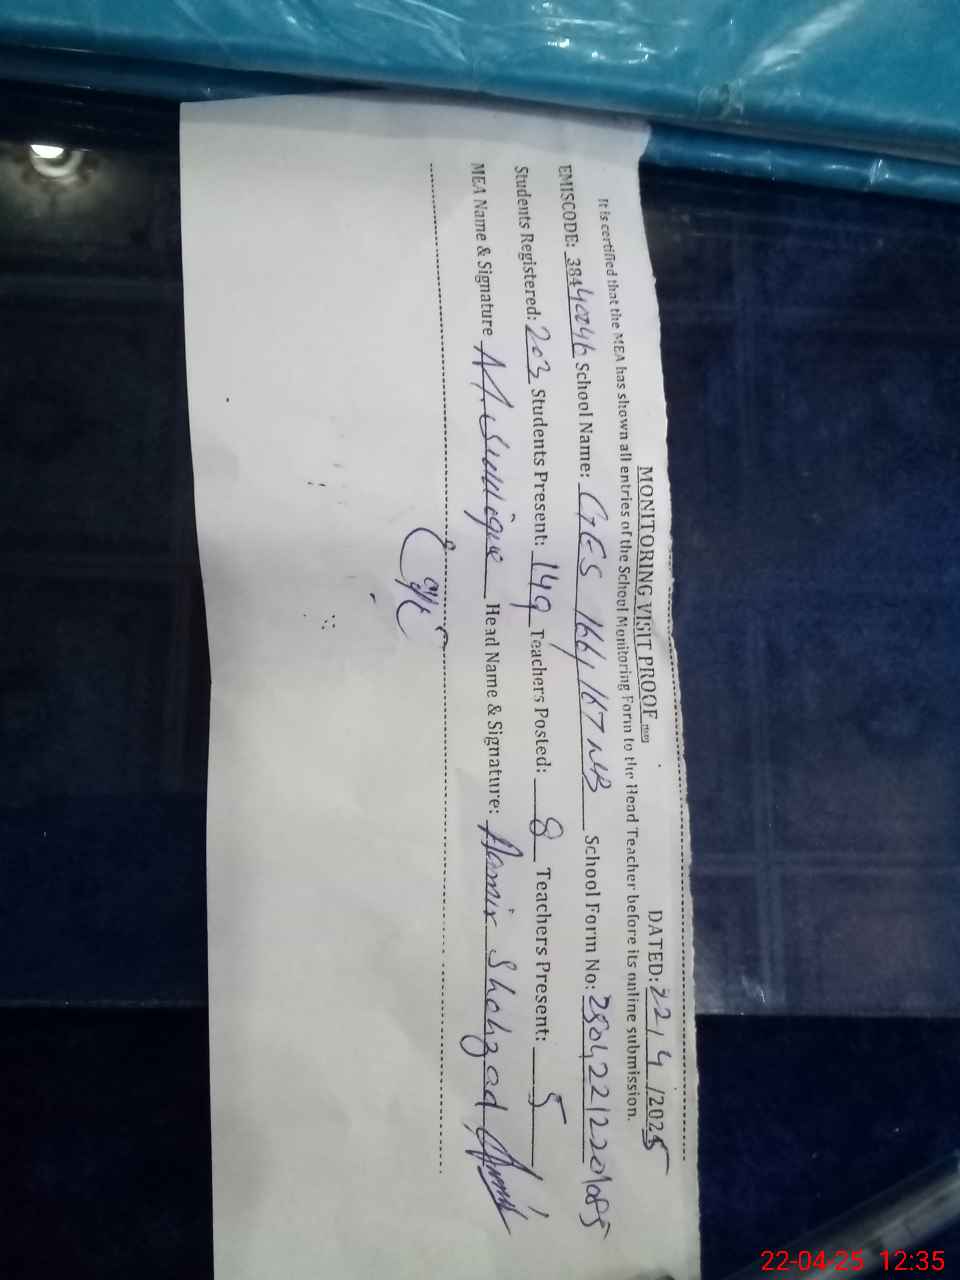 MONITORING VISIT PROOF DATED: 22/4/2025
It is certified that the MEA has shown all entries of the School Monitoring Form to the Head Teacher before its online submission.
EMISCODE: 38440246 School Name: GES 166, 167 NB School Form No: 25042212201085
Students Registered: 203 Students Present: 149 Teachers Posted: 8 Teachers Present: 5
MEA Name & Signature Head Name & Signature: Aamir Shahzad
22-04-25 12:35